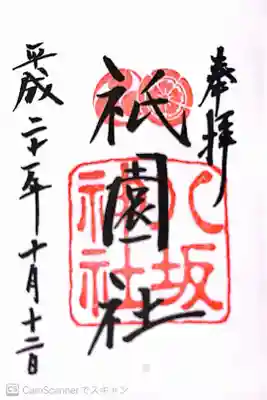 奉拝
祇園社
八坂
神社
平成二十一年十月十二日
CamScannerでスキャン